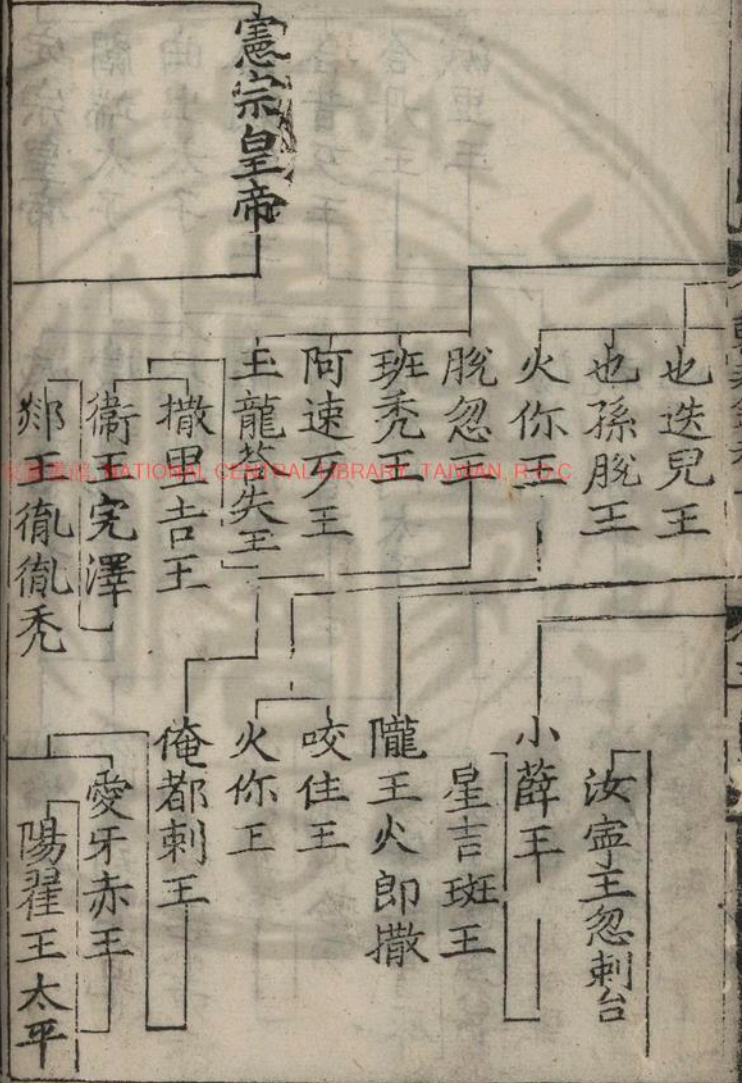 憲宗皇帝
也迭兒王
也孫脫王
火你王
脫忽王
班禿王
阿速歹王
玉龍荅失王
撒里吉王
衞王完澤
郯王徹徹禿
汝寧王忽剌台
小薛王
星吉班王
隴王火郎撒
咬住王
火你王
俺都剌王
愛牙赤王
陽翟王太平
家圖書館, NATIONAL CENTRAL LIBRARY, TAIWAN, R.O.C